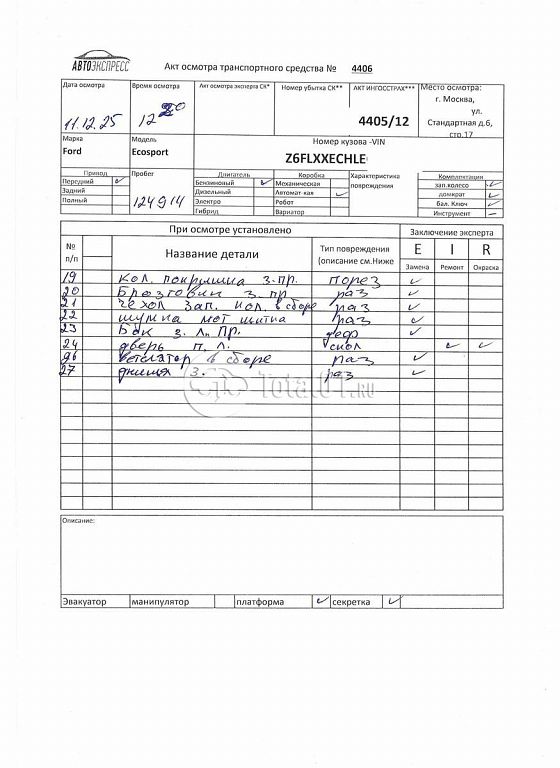 АВТОЭКСПРЕСС
Акт осмотра транспортного средства № 4406
Дата осмотра
Время осмотра
Акт осмотра эксперта СК*
Номер убытка СК**
АКТ ИНГОССТРАХ***
Место осмотра:
г. Москва,
ул.
Стандартная д.6,
стр.17
11.12.25
4405/12
Марка
Модель
Номер кузова -VIN
Ford
Ecosport
Z6FLXXECHLE
Привод
Пробег
Двигатель
Коробка
Характеристика
повреждения
Комплектация
Передний ✓
Бензиновый ✓
Механическая
зап.колесо ✓
Задний
124914
Дизельный
Автомат-кая ✓
домкрат ✓
Полный
Электро
Робот
бал. Ключ ✓
Гибрид
Вариатор
Инструмент –
При осмотре установлено
Заключение эксперта
№
п/п
Название детали
Тип повреждения
(описание см.Ниже
E I R
Замена Ремонт Окраска
19 Кол. покрышка з.пр. порез ✓
20 Брызговик з. пр раз ✓
21 чехол зап. кол. в сборе раз ✓
22 шумка мот щитка раз ✓
23 Бок з. Л. Пр. деф ✓
24 дверь п. л. скол ✓ ✓
в сборе раз ✓
27 днища з. раз ✓
Total01.RU
Описание:
Эвакуатор манипулятор платформа ✓ секретка ✓